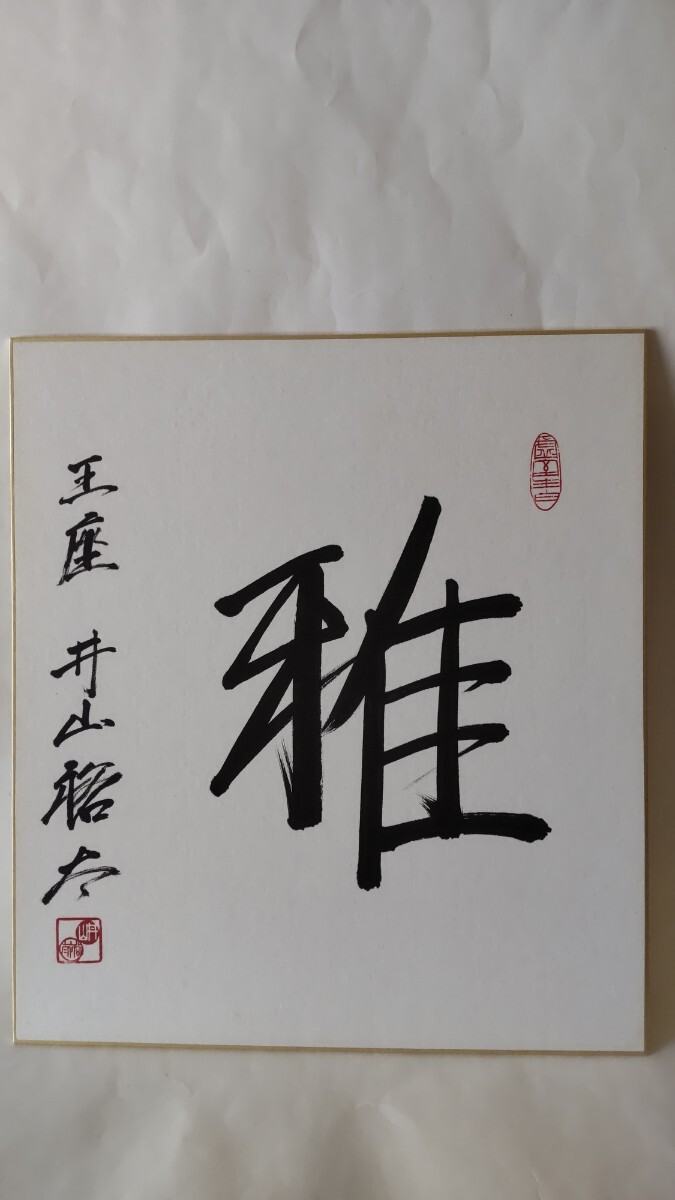 雅
王座 井山裕太